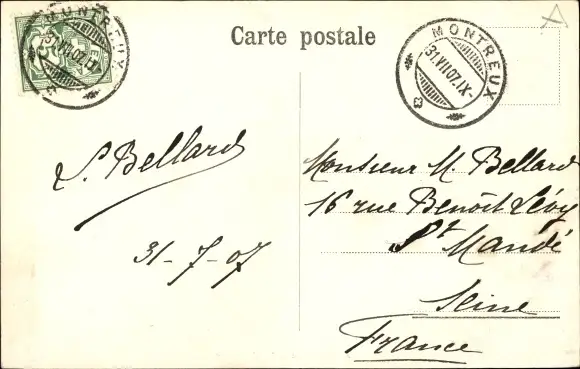 MONTREUX
31.VII.07.IX-
Carte postale
MONTREUX
31.VII.07.IX-
S. Bellard
31-7-07
Monsieur M. Bellard
16 rue Benoît Lévy
St Mandé
Seine
France